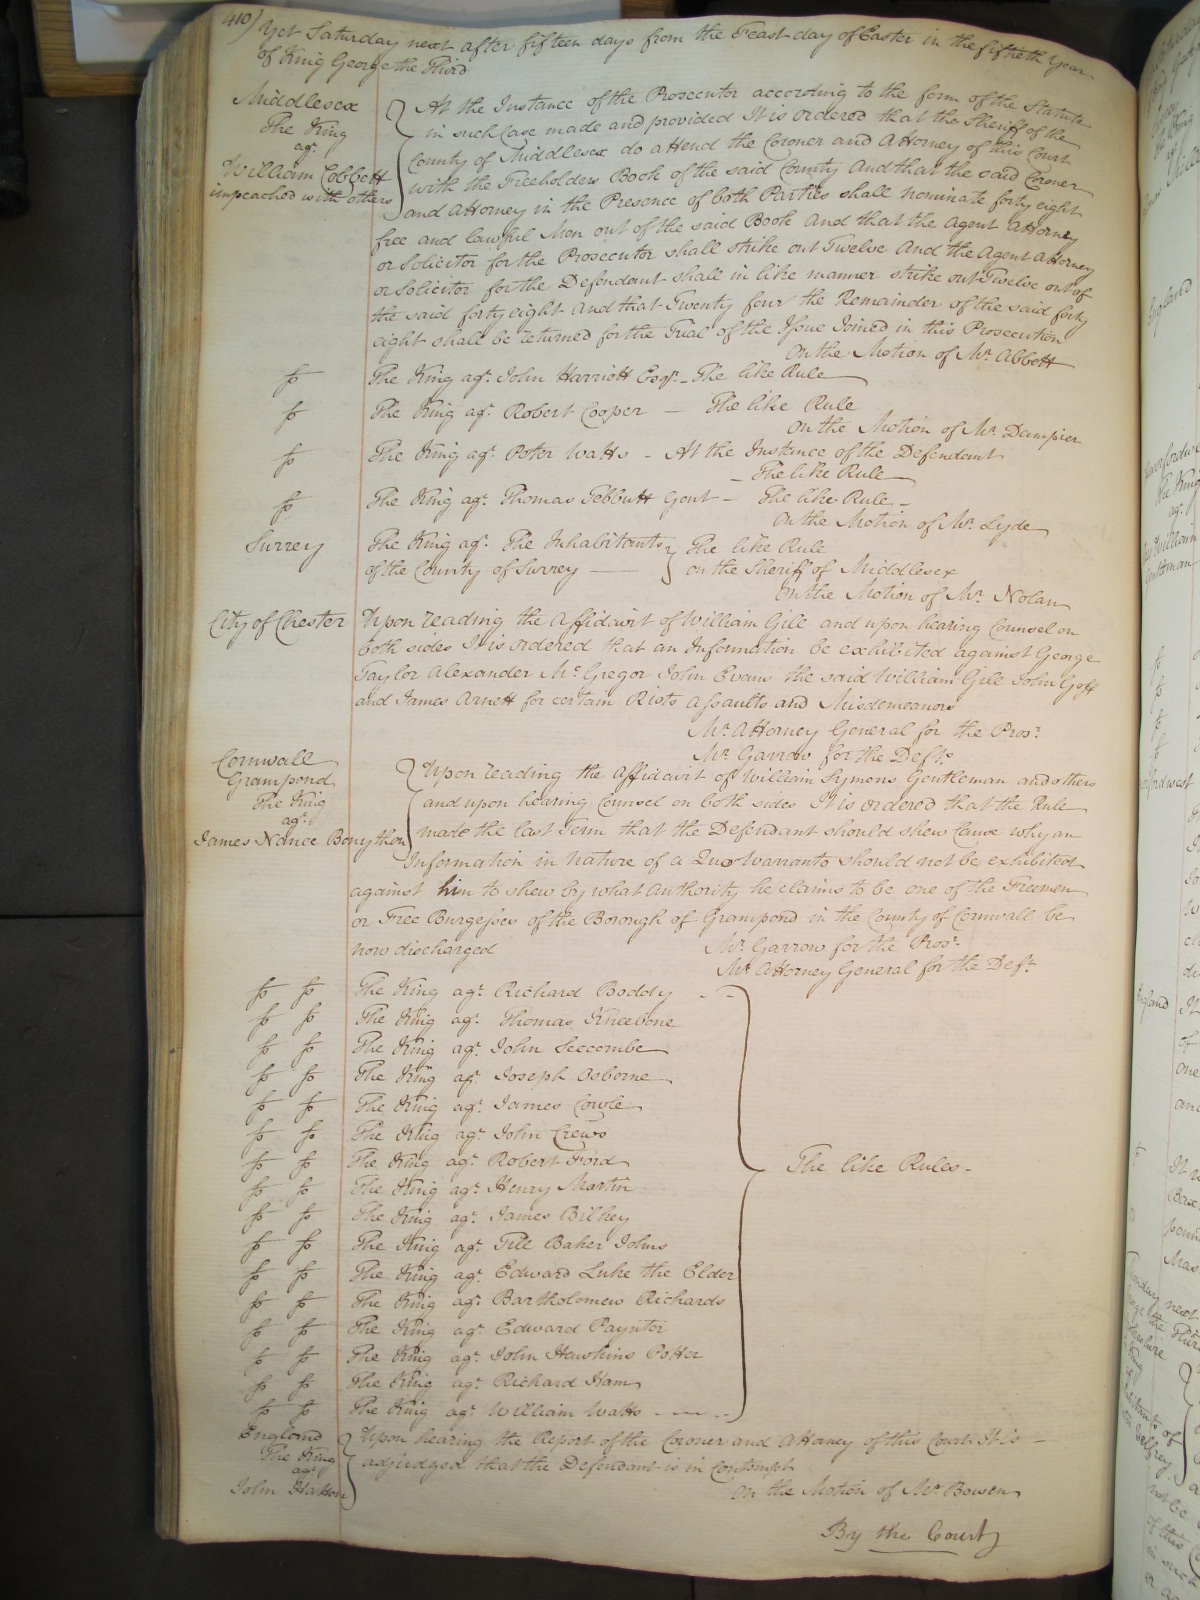 410) Yet Saturday next after fifteen days from the Feast day of Easter in the fiftieth Year
of King George the Third
Middlesex
The King
agt.
William Cobbett
impeached with others
At the Instance of the Prosecutor according to the form of the Statute
in such Case made and provided It is ordered that the Sheriff of the
County of Middlesex do attend the Coroner and Attorney of this Court
with the Freeholders Book of the said County And that the said Coroner
and Attorney in the Presence of both Parties shall nominate forty eight
free and lawful Men out of the said Book And that the Agent Attorney
or Solicitor for the Prosecutor shall strike out Twelve And the Agent Attorney
or Solicitor for the Defendant shall in like manner strike out Twelve out of
the said forty eight And that Twenty four the Remainder of the said forty
eight shall be returned for the Trial of the Issue Joined in this Prosecution
On the Motion of Mr. Abbott
The King agt. John Harriott Esqr. - The like Rule
The King agt. Robert Cooper — The like Rule
On the Motion of Mr. Dampier
The King agt. Peter Watts - At the Instance of the Defendant
- The like Rule
The King agt. Thomas Tebbutt Gent - The like Rule -
On the Motion of Mr. Lyde
Surrey The King agt. The Inhabitants The like Rule
of the County of Surrey — on the Sheriff of Middlesex
On the Motion of Mr. Nolan
City of Chester Upon reading the Affidavit of William Gill and upon hearing Counsel on
both sides It is ordered that an Information be exhibited against George
Taylor Alexander McGregor John Evans the said William Gill John Goff
and James Arnett for certain Riots Assaults and Misdemeanors
Mr. Attorney General for the Prosr.
Mr. Garrow for the Defts.
Cornwall
Grampond
The King
agt.
James Nance Bonython
Upon reading the Affidavit of William Symons Gentleman and others
and upon hearing Counsel on both sides It is ordered that the Rule
made the last Term that the Defendant should shew Cause why an
Information in Nature of a Quo Warranto should not be exhibited
against him to shew by what Authority he claims to be one of the Freemen
or Free Burgesses of the Borough of Grampond in the County of Cornwall be
now discharged Mr. Garrow for the Prosr.
Mr. Attorney General for the Deft.
The King agt. Richard Boddy
The King agt. Thomas Kneebone
The King agt. John Seccombe
The King agt. Joseph Osborne
The King agt. James Cowle
The King agt. John Crews
The King agt. Robert Ford
The King agt. Henry Martin
The like Rules -
The King agt. James Bilkey
The King agt. Till Baker Johns
The King agt. Edward Luke the Elder
The King agt. Bartholomew Richards
The King agt. Edward Paynter
The King agt. John Hawkins Potter
The King agt. Richard Ham
The King agt. William Watts
England
The King
agt.
John Hatton
Upon hearing the Report of the Coroner and Attorney of this Court It is
adjudged that the Defendant is in Contempt
On the Motion of Mr. Bowen
By the Court